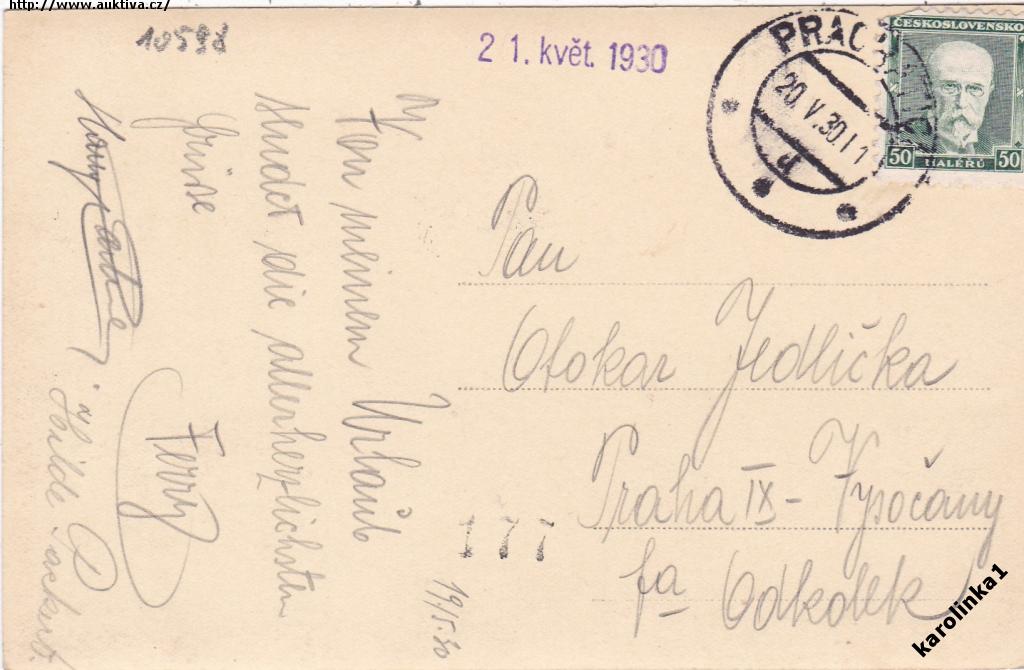 http://www.auktiva.cz/
10598
21. květ. 1930
20.V.30
ČESKOSLOVENSKO
50 HALÉŘŮ 50
Pan
Otokar Jedlička
Praha IX - Vysočany
fa Odkolek
19/5.30
Von meinem Urlaub
sendet die allerherzlichsten
Grüsse
Ferry
Hilde
karolinka1